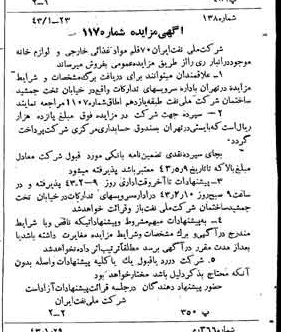 شماره ۱۳۸ ۲۳-۱-۴۳
آگهی مزایده شماره ۱۱۷۰
شرکت ملی نفت ایران ۷۰ قلم مواد غذائی خارجی و لوازم خانه
موجود در انبار ری را از طریق مزایده عمومی بفروش میرساند
۱- علاقمندان میتوانند برای دریافت برگ مشخصات و شرایط
مزایده در تهران باداره سرویسهای تدارکات واقع در خیابان تخت جمشید
ساختمان شرکت ملی نفت طبقه یازدهم اطاق شماره ۱۱۰۷ مراجعه نمایند
۲- سپرده جهت شرکت در مزایده فوق مبلغ پانزده هزار
ریال است که بایستی در تهران بصندوق حسابداری مرکزی شرکت پرداخت
گردد
بجای سپرده نقدی تضمین نامه بانکی مورد قبول شرکت معادل
مبلغ بالا که تا تاریخ ۹ر۵ر۴۳ معتبر باشد پذیرفته میشود
۳- پیشنهادات تا آخر وقت اداری روز ۹-۲-۴۳ پذیرفته و در
ساعت ۹ صبح روز ۱۰ر۲ر۴۳ در اداره سرویسهای تدارکات در خیابان تخت
جمشید ساختمان شرکت ملی نفت باز و قرائت خواهد شد
۴- به پیشنهادات مبهم مشروط و پیشنهاداتیکه ناقص و با شرایط
مندرج در آگهی و برگ مشخصات و شرایط مزایده مغایرت داشته باشد یا
بعد از مدت مقرر در آگهی برسد مطلقا ترتیب اثر داده نخواهد شد
۵- شرکت در رد یا قبول یک یا کلیه پیشنهادات واصله بدون
آنکه محتاج بذکر دلیل باشد مختار خواهد بود
حضور پیشنهاد دهندگان در جلسه قرائت پیشنهادات آزاد است
شرکت ملی نفت ایران
پ ۳۵۰ ۲-۲